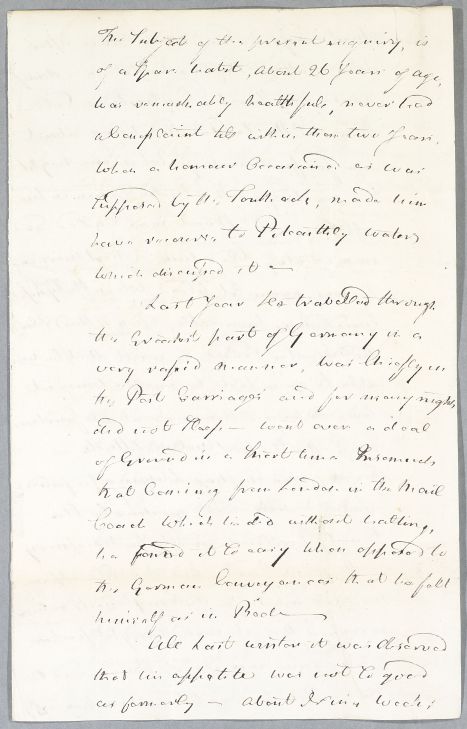 The Subject of the present enquiry, is
of a spare habit, about 26 Years of age,
has remarkably healthfull, never had
a Complaint till within these two Years,
When a humour Occasioned as was
supposed by the Toothach, made him
have recourse to Pitcaithly waters
which discussed it —
Last Year he travelled through
the Greatest part of Germany in a
very rapid manner, was Chiefly in
the Post Carriages and for many nights
did not Sleep — went over a deal
of Ground in a Short time Insomuch
that Coming from London in the Mail
Coach Which he did without halting,
he found it so easy When opposed to
the German Conveyances that he felt
himself as in Bed —
All last winter it was observed
that his appetite was not so good
as formerly — about weeks